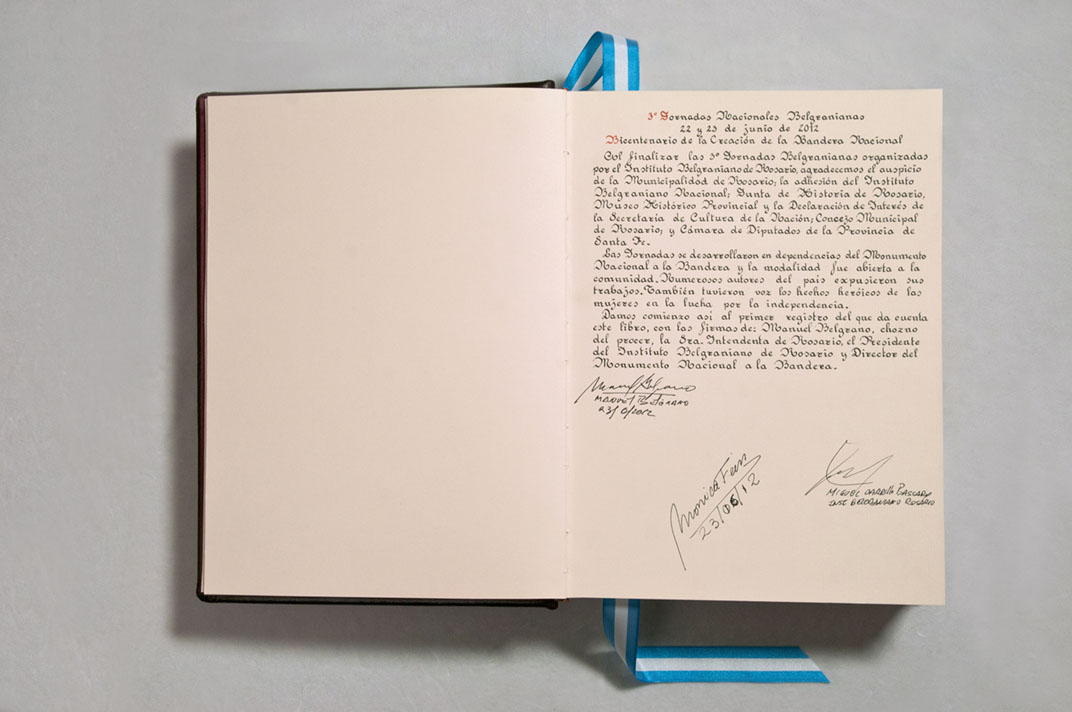 3º Jornadas Nacionales Belgranianas
22 y 23 de junio de 2012
Bicentenario de la Creación de la Bandera Nacional
Col finalizar las 3º Jornadas Belgranianas organizadas
por el Instituto Belgraniano de Rosario, agradecemos el auspicio
de la Municipalidad de Rosario; la adhesión del Instituto
Belgraniano Nacional; Junta de Historia de Rosario,
Museo Histórico Provincial y la Declaración de Interés de
la Secretaría de Cultura de la Nación; Concejo Municipal
de Rosario; y Cámara de Diputados de la Provincia de
Santa Fe.
Las Jornadas se desarrollaron en dependencias del Monumento
Nacional a la Bandera y la modalidad fue abierta a la
comunidad. Numerosos autores del país expusieron sus
trabajos. También tuvieron voz los hechos heróicos de las
mujeres en la lucha por la independencia.
Damos comienzo así al primer registro del que da cuenta
este libro, con las firmas de: Manuel Belgrano, chozno
del procer, la Sra. Intendenta de Rosario, el Presidente
del Instituto Belgraniano de Rosario y Director del
Monumento Nacional a la Bandera.
Manuel Belgrano
MANUEL BELGRANO
Monica Fein
23/06/12
MIGUEL CARRILLO BASCARY
INST BELGRANIANO ROSARIO